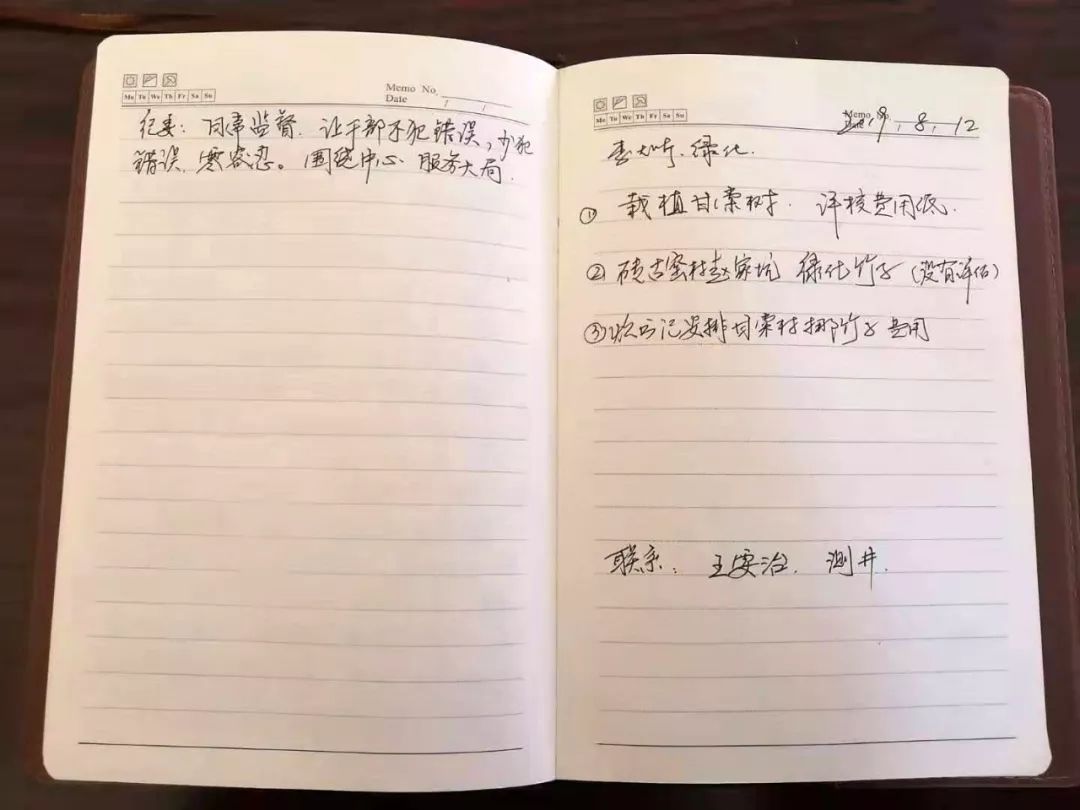 Memo No.
Date / /
Mo Tu We Th Fr Sa Su
纪委：日常监督. 让干部不犯错误，少犯
错误. 零容忍。围绕中心 服务大局.
Memo No.
19.8.12
Mo Tu We Th Fr Sa Su
绿化.
① 栽植甘棠树. 评核费用低.
② 赵家坑 绿化竹子（没有评估）
③ 书记安排甘棠村挪竹子费用
联系：王安治. 测井.